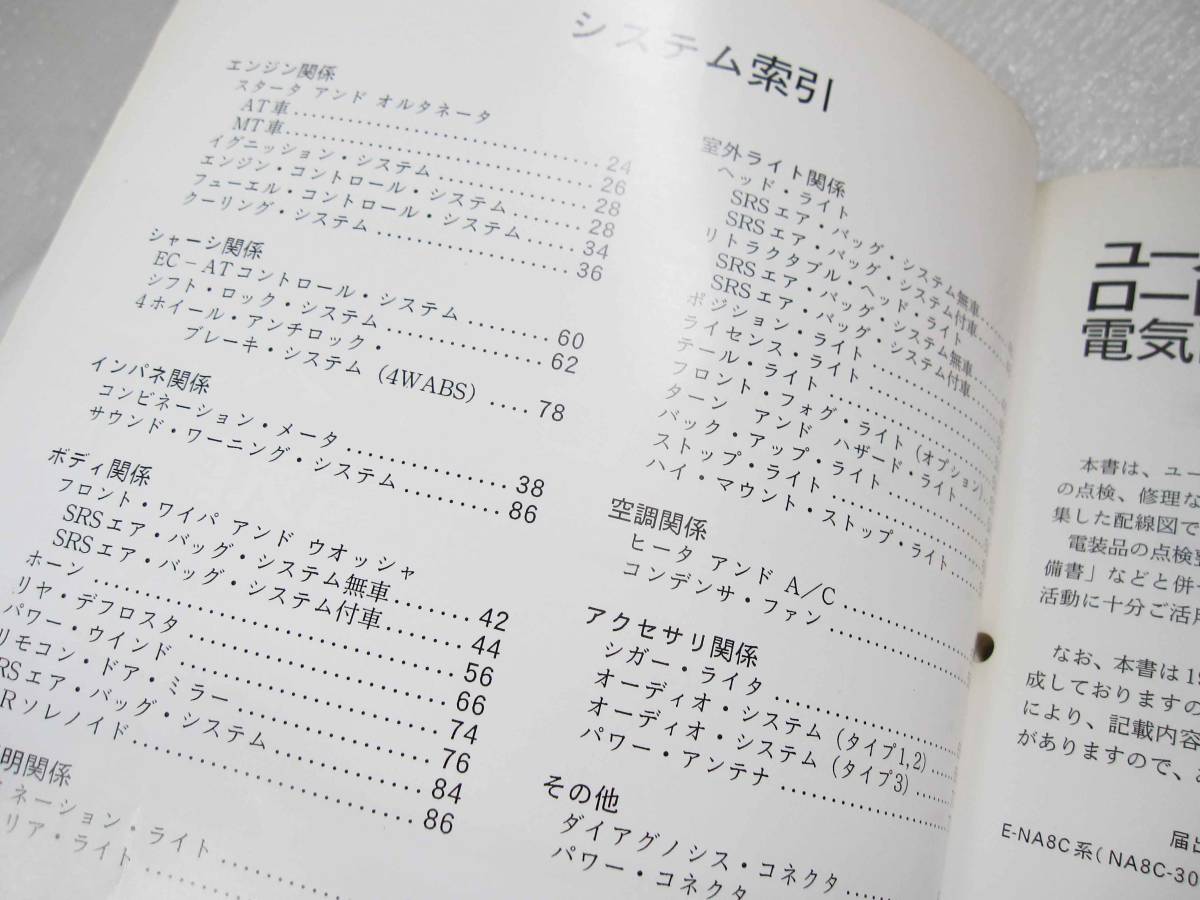 システム索引
エンジン関係
スタータ アンド オルタネータ
AT車……………………24
MT車……………………26
イグニッション・システム……………28
エンジン・コントロール・システム………28
フューエル・コントロール・システム……34
クーリング・システム……………………36
シャーシ関係
EC－ATコントロール・システム………60
シフト・ロック・システム………………62
4ホイール・アンチロック・
ブレーキ・システム (4WABS) ….78
インパネ関係
コンビネーション・メータ………………38
サウンド・ワーニング・システム………86
ボディ関係
フロント・ワイパ アンド ウオッシャ
SRSエア・バッグ・システム無車…….42
SRSエア・バッグ・システム付車…….44
ホーン……………………56
リヤ・デフロスタ……………………66
パワー・ウインド……………………74
リモコン・ドア・ミラー………………76
RSエア・バッグ・システム……………84
Rソレノイド……………………86
明関係
ネーション・ライト……………
リア・ライト……………
室外ライト関係
ヘッド・ライト
SRSエア・バッグ・システム無車……
SRSエア・バッグ・システム付車……
リトラクタブル・ヘッド・ライト
SRSエア・バッグ・システム無車……
SRSエア・バッグ・システム付車……
ポジション・ライト……………
ライセンス・ライト……………
テール・ライト……………
フロント・フォグ・ライト (オプション)…
ターン アンド ハザード・ライト……
バック・アップ・ライト……………
ストップ・ライト……………
ハイ・マウント・ストップ・ライト……
空調関係
ヒータ アンド A/C……………
コンデンサ・ファン……………
アクセサリ関係
シガー・ライタ……………
オーディオ・システム (タイプ1,2)……
オーディオ・システム (タイプ3)……
パワー・アンテナ……………
その他
ダイアグノシス・コネクタ……………
パワー・コネクタ……………
ユー
ロー
電気
本書は、ユー
の点検、修理な
集した配線図で
電装品の点検整
備書」などと併せ
活動に十分ご活用
なお、本書は19
成しておりますの
により、記載内容
がありますので、
届出
E-NA8C系(NA8C-30